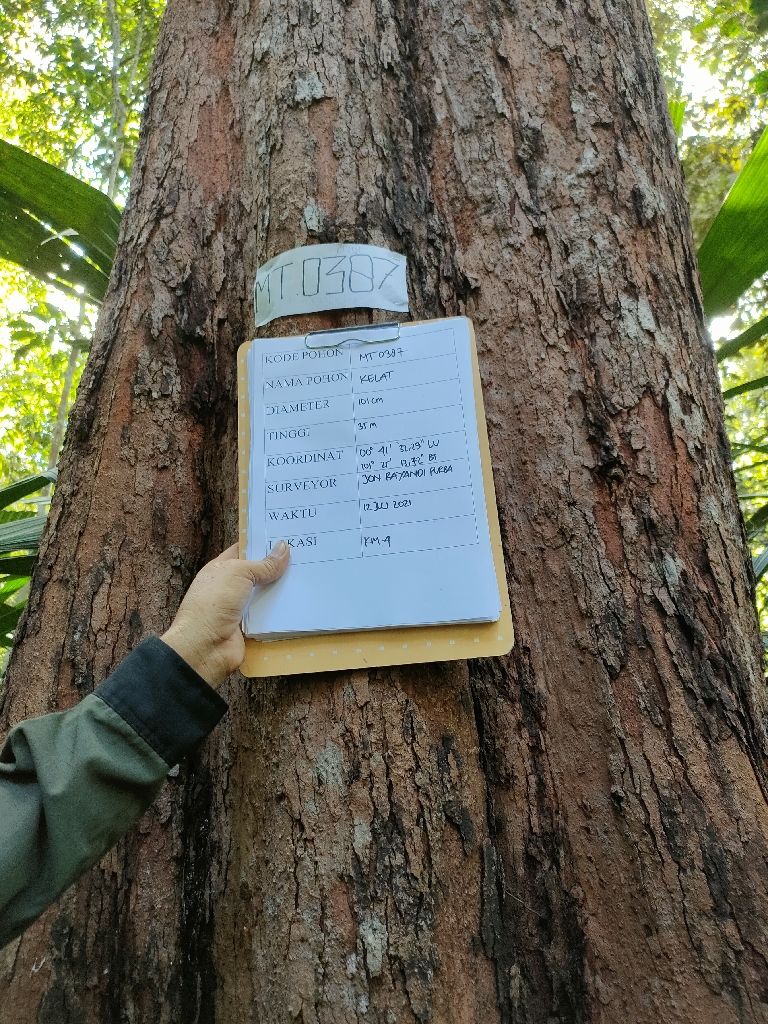 MT.0387
KODE POHON MT 0387
NAMA POHON KELAT
DIAMETER 101 cm
TINGGI 35 m
KOORDINAT 00° 41' LU
101° BT
SURVEYOR JON RAYANDI PURBA
WAKTU 12 JULI 2021
LOKASI KM-9